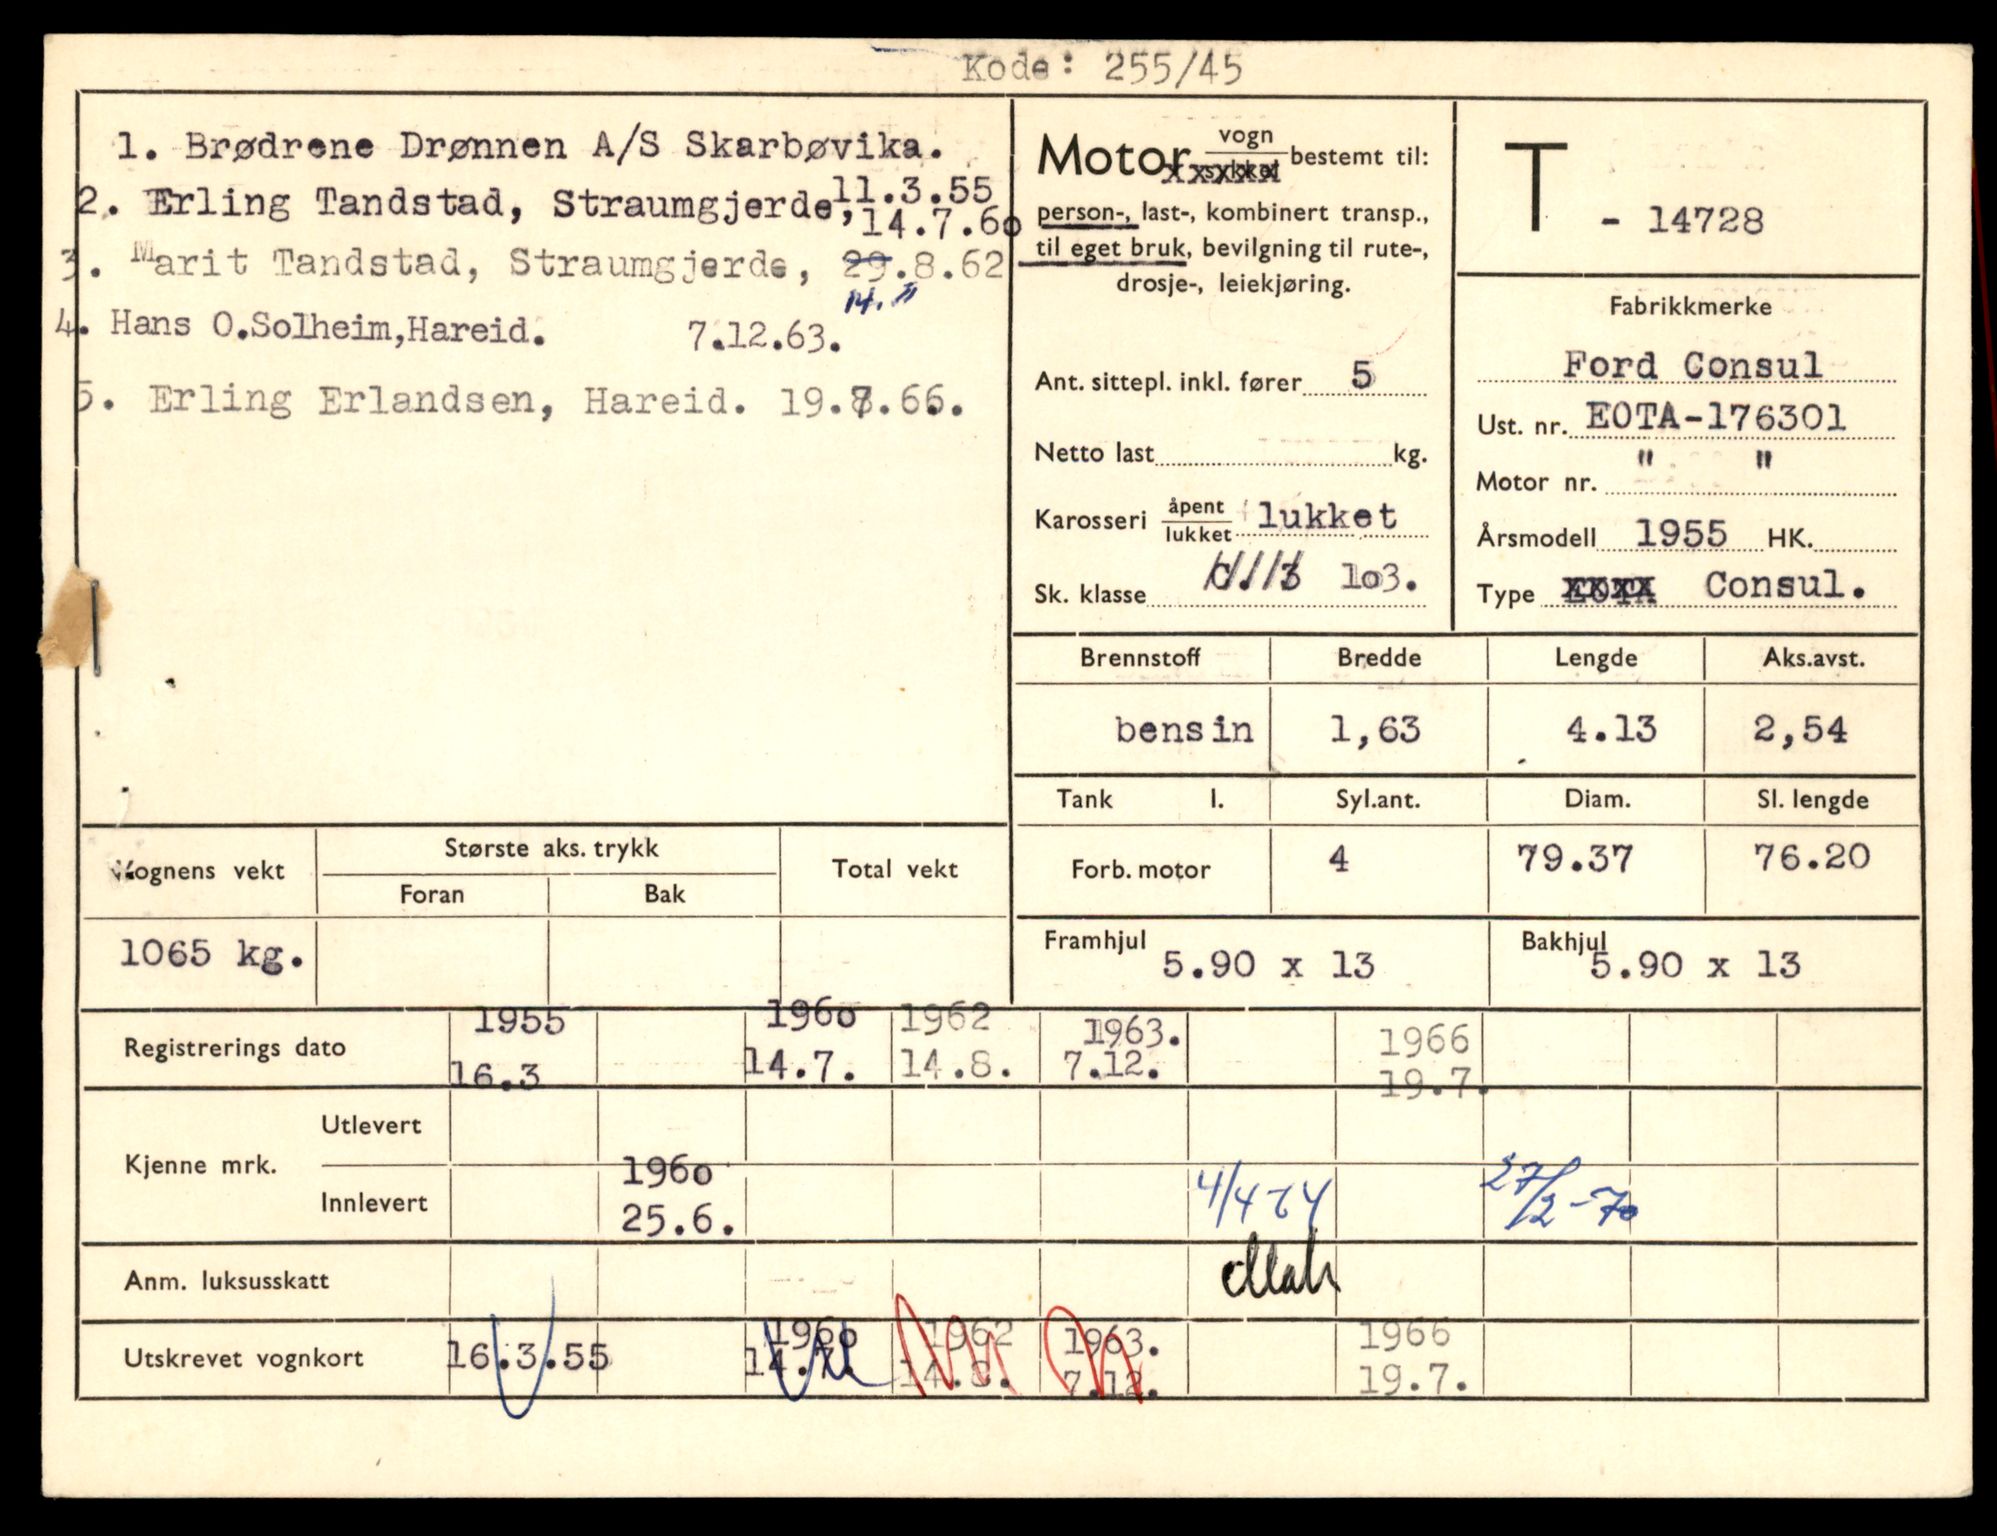 Kode: 255/45
1. Brødrene Drønnen A/S Skarbøvika.
11.3.55
2. Erling Tandstad, Straumgjerde, 14.7.60
3. Marit Tandstad, Straumgjerde, 29.8.62
14. "
4. Hans O.Solheim, Hareid. 7.12.63.
5. Erling Erlandsen, Hareid. 19.7.66.
Motor vogn sykkel bestemt til:
person-, last-, kombinert transp.,
til eget bruk, bevilgning til rute-,
drosje-, leiekjøring.
Ant. sittepl. inkl. fører 5
Netto last kg.
Karosseri åpent lukket lukket
Sk. klasse 103.
T - 14728
Fabrikkmerke
Ford Consul
Ust. nr. EOTA-176301
Motor nr. " "
Årsmodell 1955 HK.
Type EOTA Consul.
Brennstoff Bredde Lengde Aks.avst.
bensin 1,63 4.13 2,54
Tank l. Syl.ant. Diam. Sl. lengde
Forb. motor 4 79.37 76.20
Framhjul 5.90 x 13 Bakhjul 5.90 x 13
Vognens vekt Største aks. trykk Total vekt
Foran Bak
1065 kg.
1955 1960 1962 1963. 1966
Registrerings dato 16.3 14.7. 14.8. 7.12. 19.7.
Kjenne mrk. Utlevert
Innlevert 1960 25.6. 4/4 64 27/2-70
Anm. luksusskatt
1960 1962 1963. 1966
Utskrevet vognkort 16.3.55 14.7. 14.8. 7.12. 19.7.